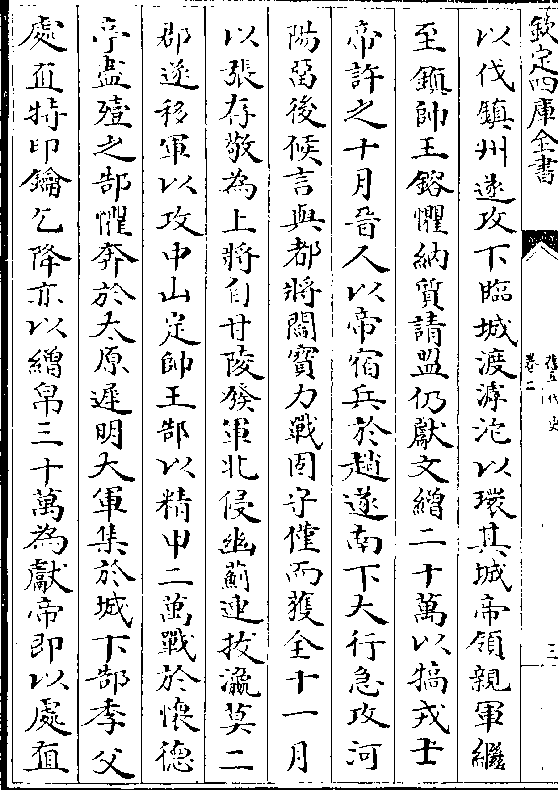 欽定四庫全書
舊五代史
卷二
三
以伐鎮州遂攻下臨城渡滹沱以環其城帝領親軍繼
至鎮帥王鎔懼納質請盟仍獻文繒二十萬以犒戎士
帝許之十月晉人以帝宿兵於趙遂南下大行急攻河
陽留後侯言與都將閻寳力戰固守僅而獲全十一月
以張存敬為上將自甘陵發軍北侵幽薊連拔瀛莫二
郡遂移軍以攻中山定帥王郜以精甲二萬戰於懷德
亭盡殪之郜懼奔於太原遲明大軍集於城下郜季父
處直持印鑰乞降亦以繒帛三十萬為獻帝即以處直